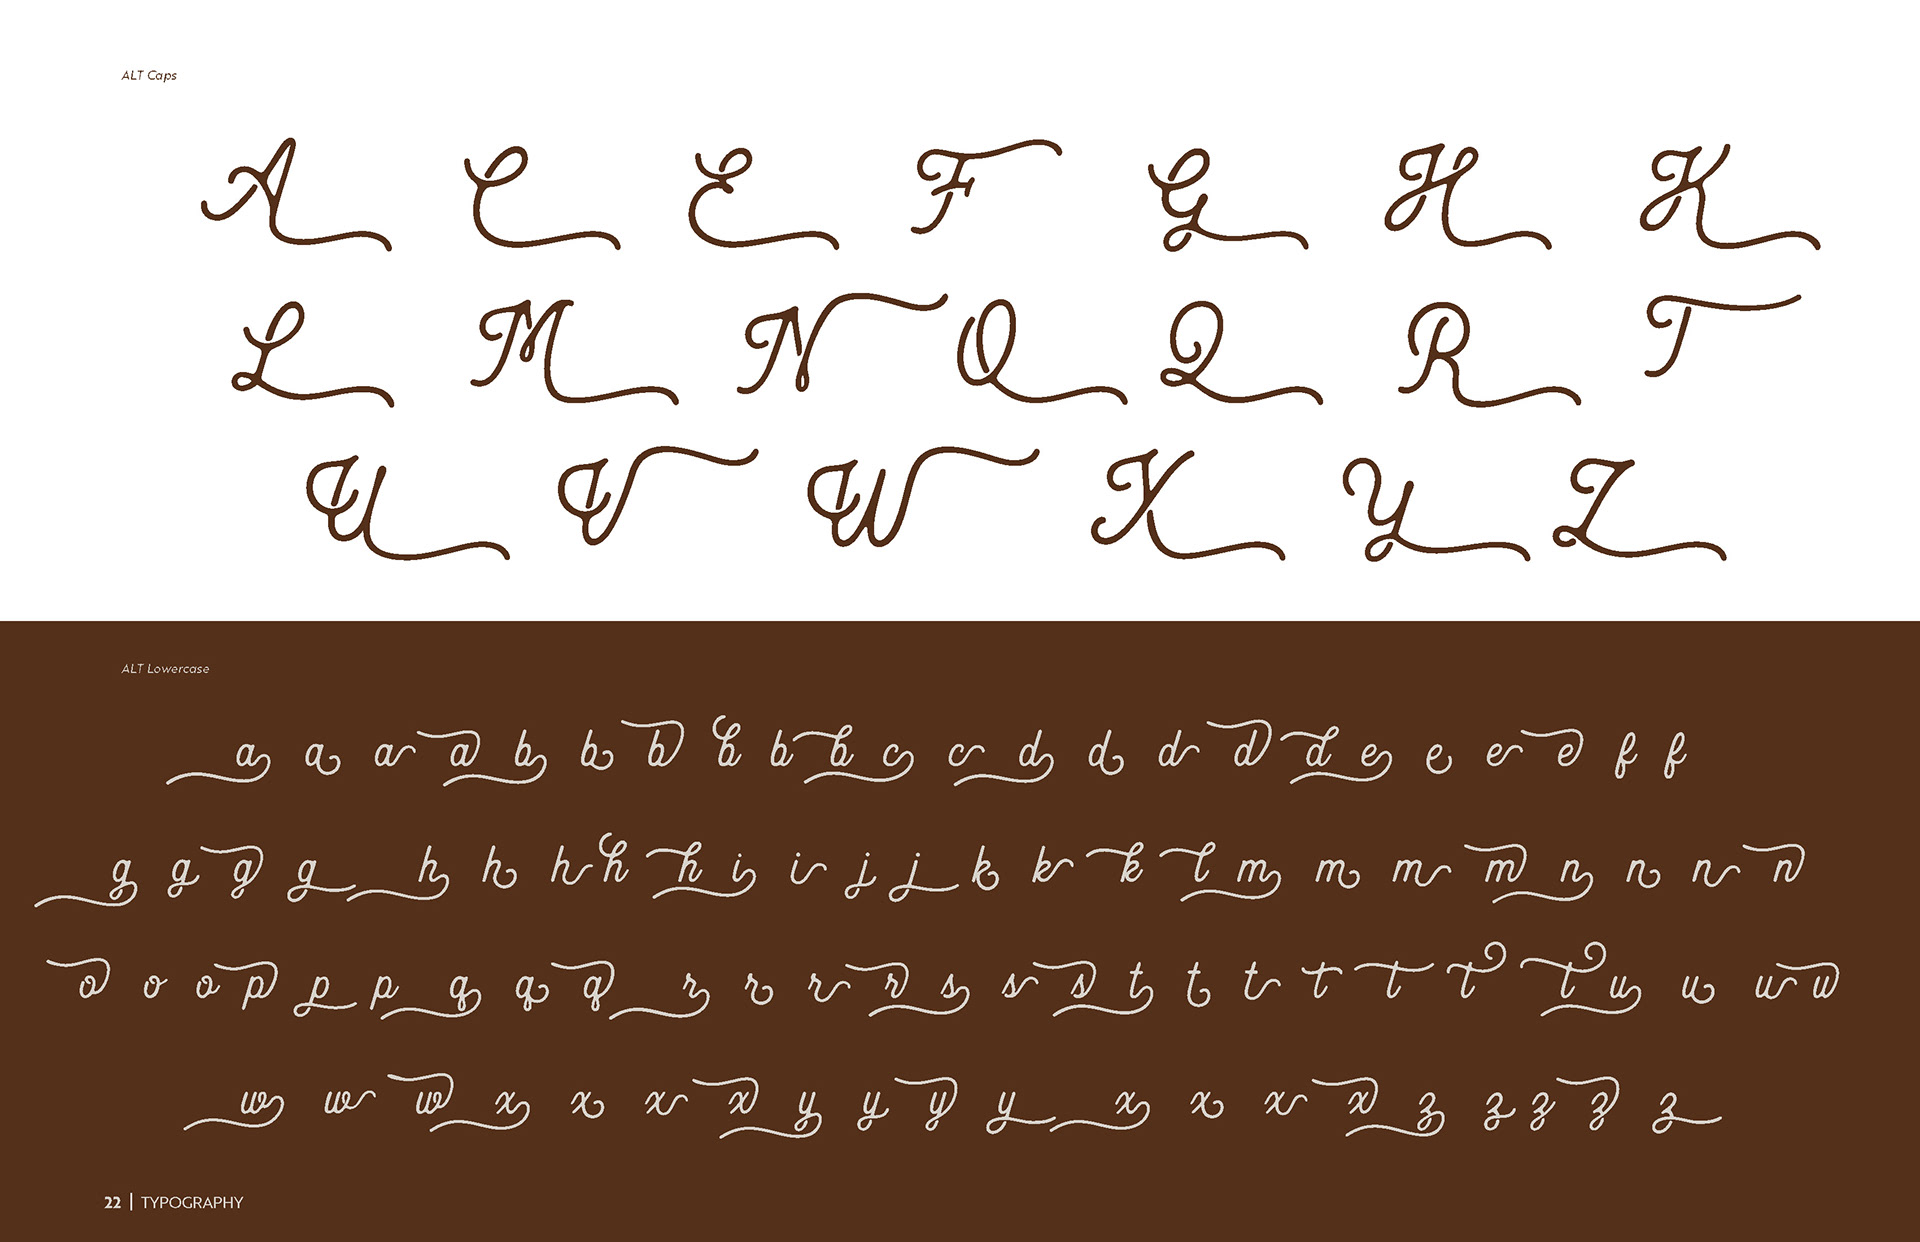 ALT Caps
A C E F G H K
L M N O Q R T
U V W X Y Z
ALT Lowercase
a a a a b b b b b b c c d d d d d e e e e f f
g g g g h h h h h i i j j k k k l m m m m n n n n
o o o p p p q q q r r r r s s s t t t t t t t u u u u
w w w x x x x y y y y x x x x z z z z z
22 | TYPOGRAPHY